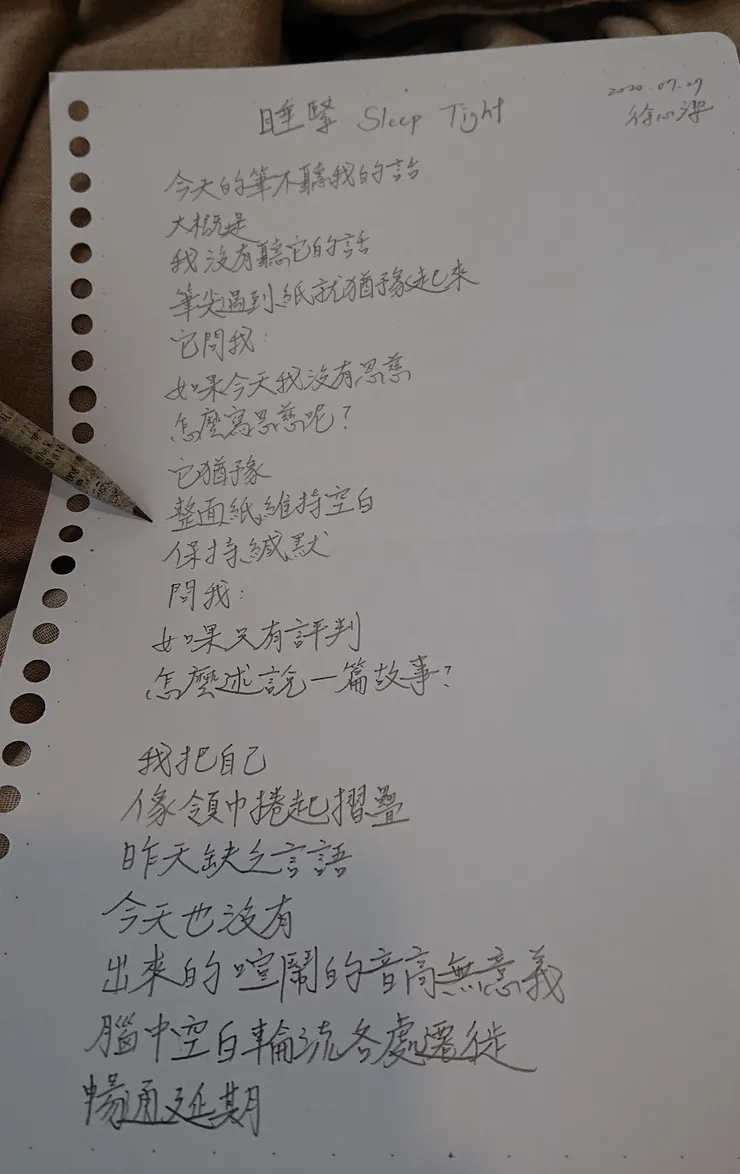 睡緊 Sleep Tight
2020.07.27
徐心潔
今天的筆不聽我的話
大概是
我沒有聽它的話
筆尖遇到紙就猶豫起來
它問我:
如果今天我沒有恩慈
怎麼寫恩慈呢?
它猶豫
整面紙維持空白
保持緘默
問我:
如果只有評判
怎麼述說一篇故事?
我把自己
像領巾捲起摺疊
昨天缺乏言語
今天也沒有
出來的喧鬧的音高無意義
腦中空白輪流各處遷徙
暢通延期